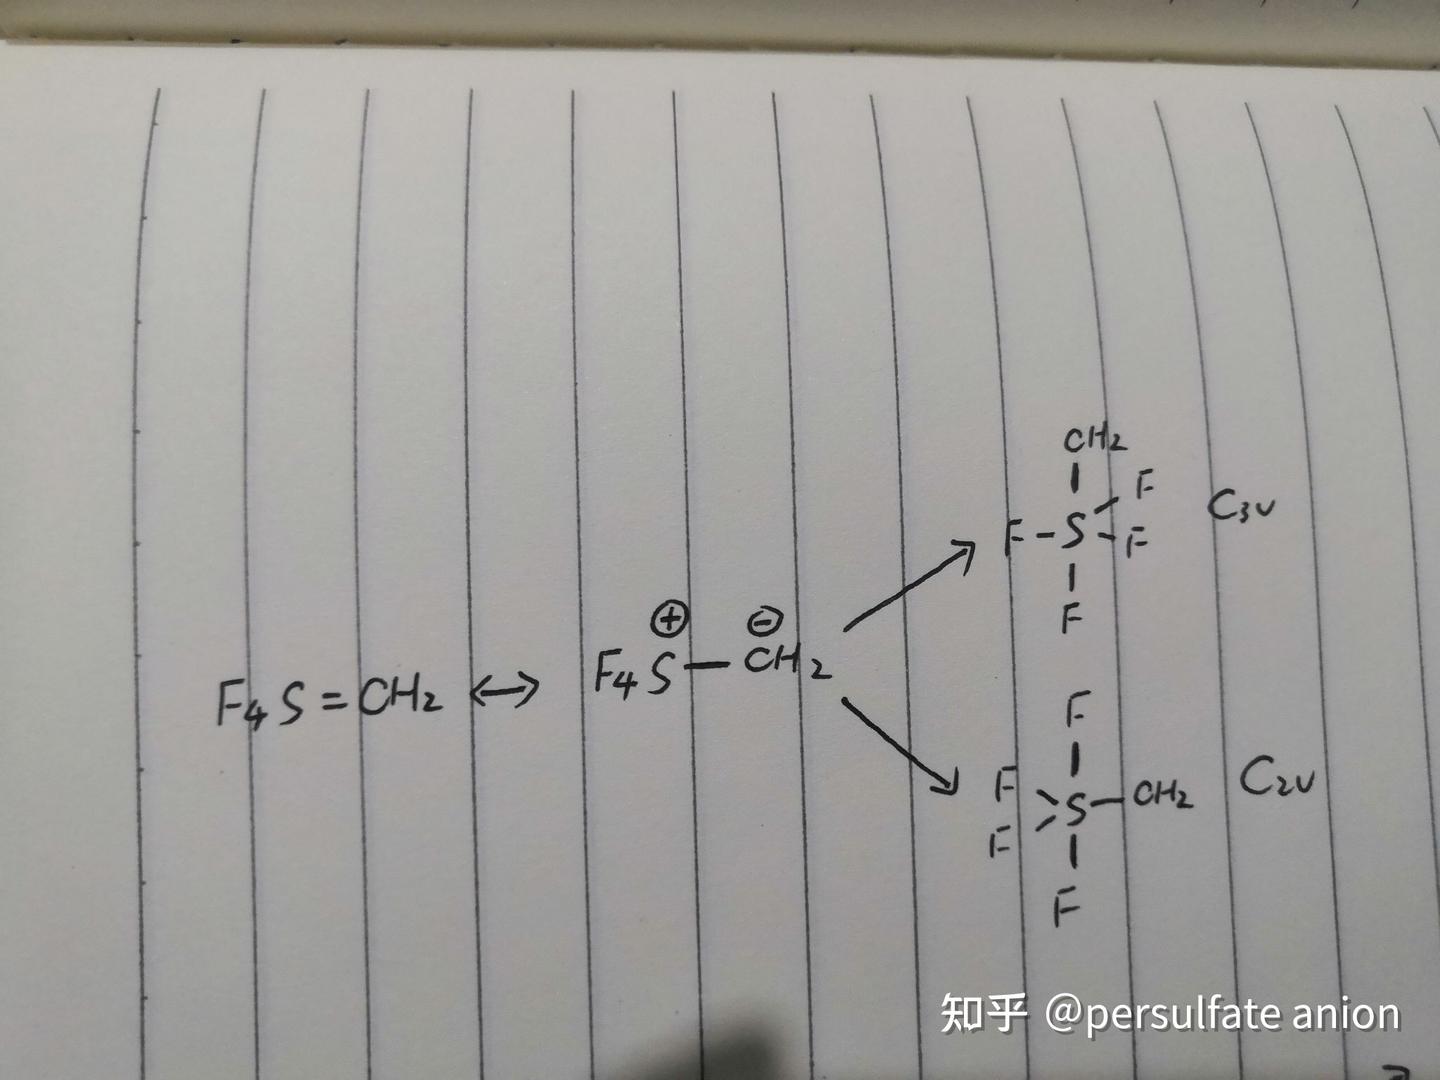 CH₂
F
F - S - F
C₃ᵥ
F
⊕ ⊖
F₄S = CH₂ ↔ F₄S — CH₂
F
F
S — CH₂
C₂ᵥ
F
F
知乎 @persulfate anion